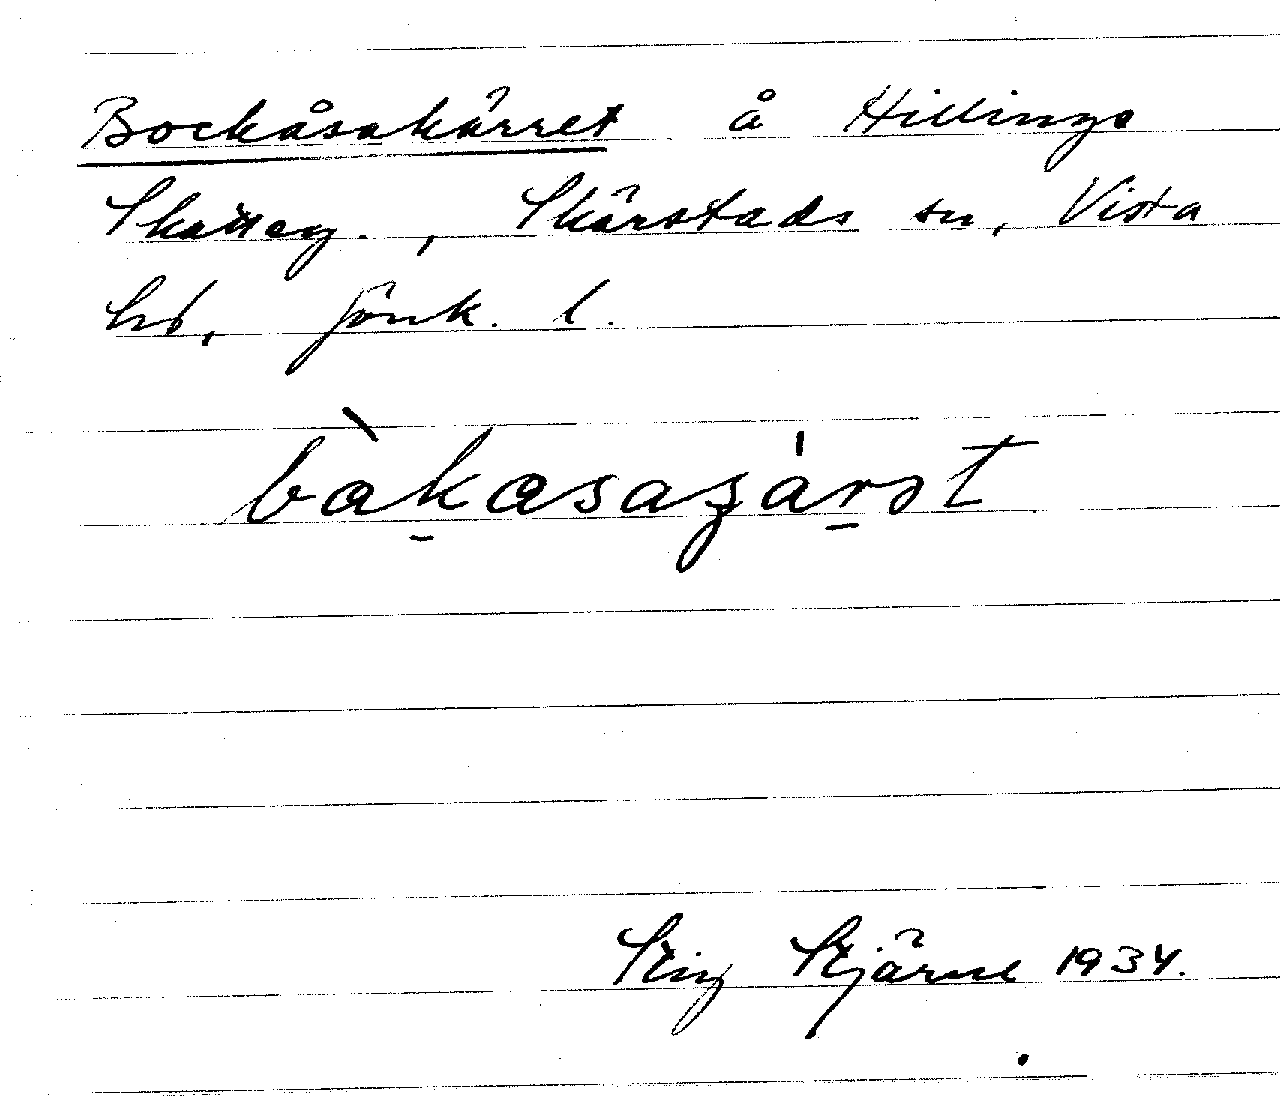 Bockåsakärret å Hillinge
Skatteg., Skärstads sn, Vista
hd, Jönk. l.
bàkasaʒárət
Stig Stjärne 1934.